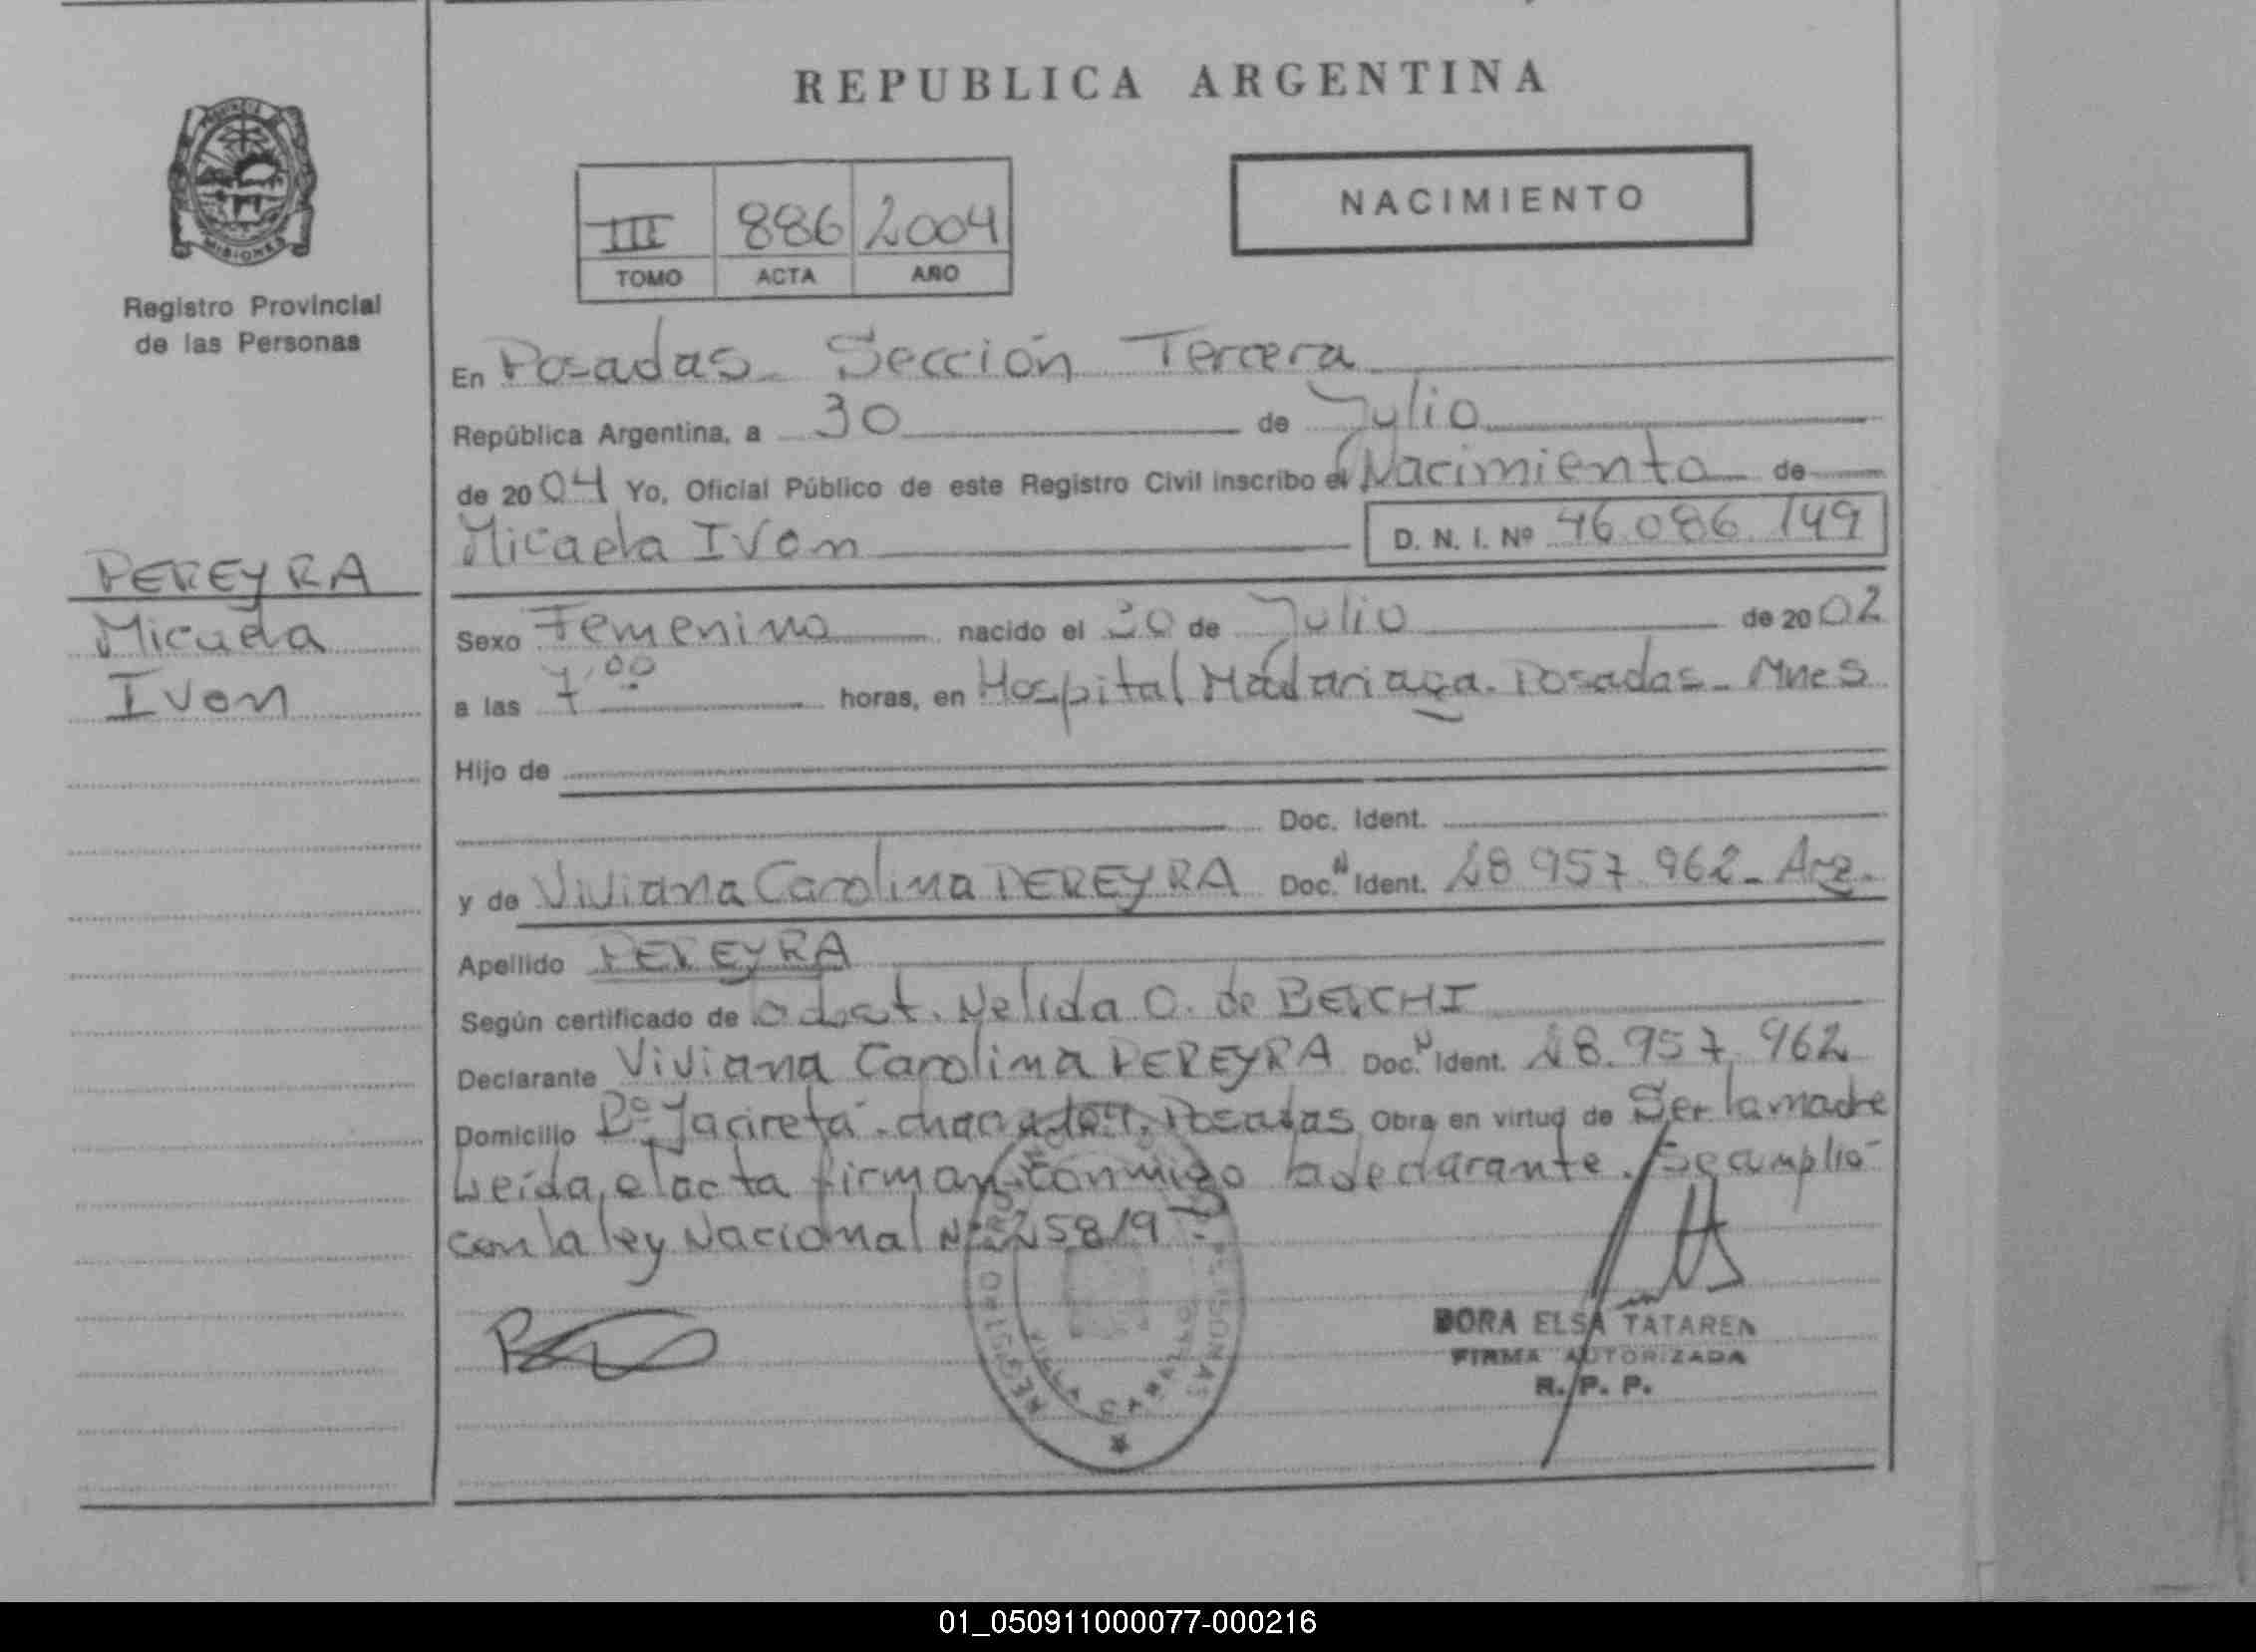 REPUBLICA ARGENTINA
NACIMIENTO
III 886 2004
TOMO ACTA AÑO
MISIONES
Registro Provincial
de las Personas
PEREYRA
Micaela
Ivon
En Posadas - Sección Tercera
República Argentina, a 30 de Julio
de 2004 Yo, Oficial Público de este Registro Civil inscribo el Nacimiento de
Micaela Ivon D. N. I. Nº 46.086.149
Sexo Femenino nacido el 30 de Julio de 2002
a las 7,00 horas, en Hospital Madariaga. Posadas - Mnes
Hijo de
Doc. Ident.
y de Viviana Carolina PEREYRA Doc. N Ident. 28.957.962 - Arg.
Apellido PEREYRA
Según certificado de Obst. Nelida O. de
Declarante Viviana Carolina PEREYRA Doc. N Ident. 28.957.962
Domicilio Bº Yacireta - Posadas Obra en virtud de Ser la madre
Leída el acta firman conmigo la declarante. Se cumplio
con la ley Nacional Nº
DORA ELSA TATAREN
FIRMA AUTORIZADA
R. P. P.
01_050911000077-000216